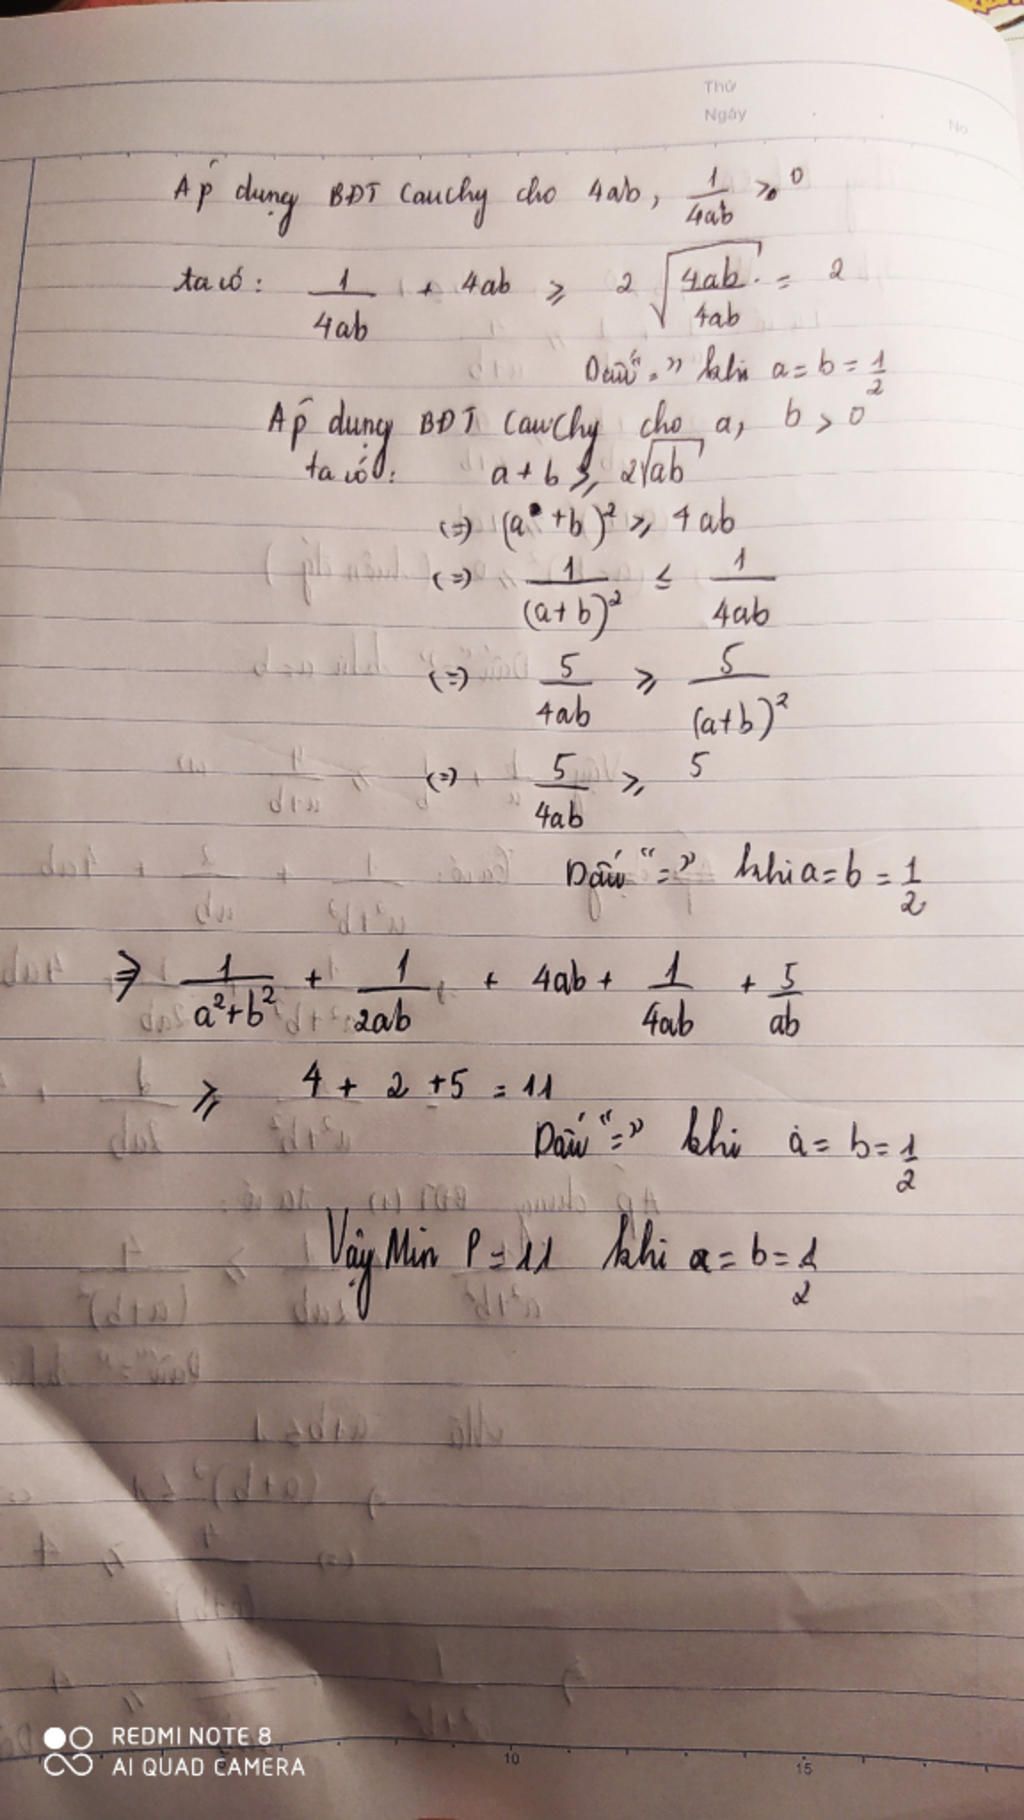 Thứ
Ngày
No
Áp dụng BĐT Cauchy cho 4ab, 1/4ab ⩾ 0
ta có: 1/4ab + 4ab ⩾ 2√(4ab/4ab) = 2
Dấu "=" khi a = b = 1/2
Áp dụng BĐT Cauchy cho a, b > 0
ta có: a + b ⩾ 2√ab
(=) (a + b)² ⩾ 4ab
(=) 1/(a+b)² ≤ 1/4ab
(=) 5/4ab ⩾ 5/(a+b)²
(=) 5/4ab ⩾ 5
Dấu "=" khi a = b = 1/2
⇒ 1/(a²+b²) + 1/2ab + 4ab + 1/4ab + 5/ab
⩾ 4 + 2 + 5 = 11
Dấu "=" khi a = b = 1/2
Vậy Min P = 11 khi a = b = 1/2
10
15
REDMI NOTE 8
AI QUAD CAMERA